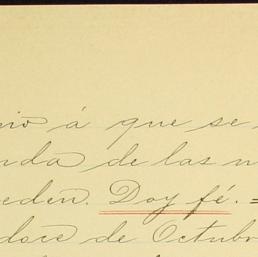 nio á que se
nda de las n
eden. Doy fé. =
doce de Octubr